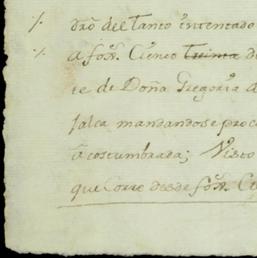 /. drão del Tanto intentado
/. a foxs. Ciento Treinta d
te de Doña Gregoria d
jalca mandandose proc
acostumbrada; Visto
que Corre desde foxs. C